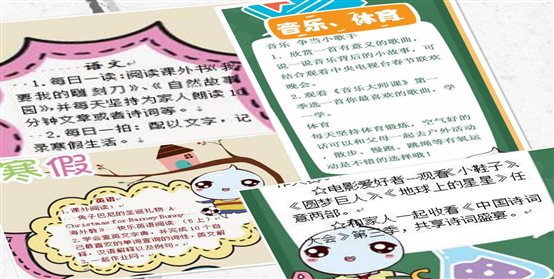 语文
1. 每日一读:阅读课外书《我
要我的雕刻刀》、《自然故事
园》,并每天坚持为家人朗读10
分钟文章或者诗词等。
2. 每日一拍:配以文字,记
录寒假生活。
音乐、体育
音乐 争当小歌手
1. 欣赏一首有意义的歌曲,
说一说音乐背后的小故事,可
结合观看中央电视台春节联欢
晚会。
2. 观看《音乐大师课》第一
季选一首你最喜欢的歌曲,学
一学。
体育
每天坚持体育锻炼,空气好的
话可以和父母一起去户外活动
散步、慢跑、跳绳等有氧运
动是不错的选择哦!
寒假
英语:
1. 课外阅读:
兔子巴尼的圣诞礼物 A
Christmas for Barney Bunny
海外教》 快乐英语阅读(5上)
2. 学会查英文字典,补充完10个自
己最喜欢的单词查词的词性,英文解
释,汉语解释以及例句。
一起作业网
☆电影爱好者—观看《小鞋子》
《圆梦巨人》、《地球上的星星》任
意两部。
☆和家人一起收看《中国诗词
大会》第二季,共享诗词盛宴。